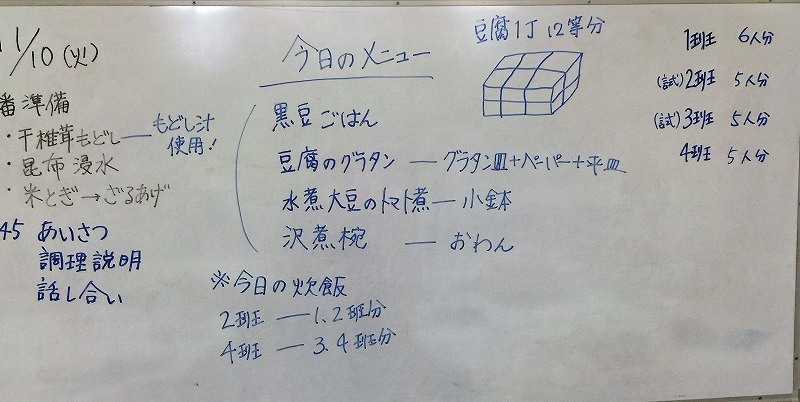 11/10(火)
番準備
・干椎茸もどし――もどし汁
使用!
・昆布浸水
・米とぎ→ざるあげ
45 あいさつ
調理説明
話し合い
今日のメニュー
黒豆ごはん
豆腐のグラタン ― グラタン皿+ペーパー+平皿
水煮大豆のトマト煮 ― 小鉢
沢煮椀 ― おわん
※今日の炊飯
2班 ― 1.2班分
4班 ― 3.4班分
豆腐1丁 12等分
1班 6人分
(試)2班 5人分
(試)3班 5人分
4班 5人分